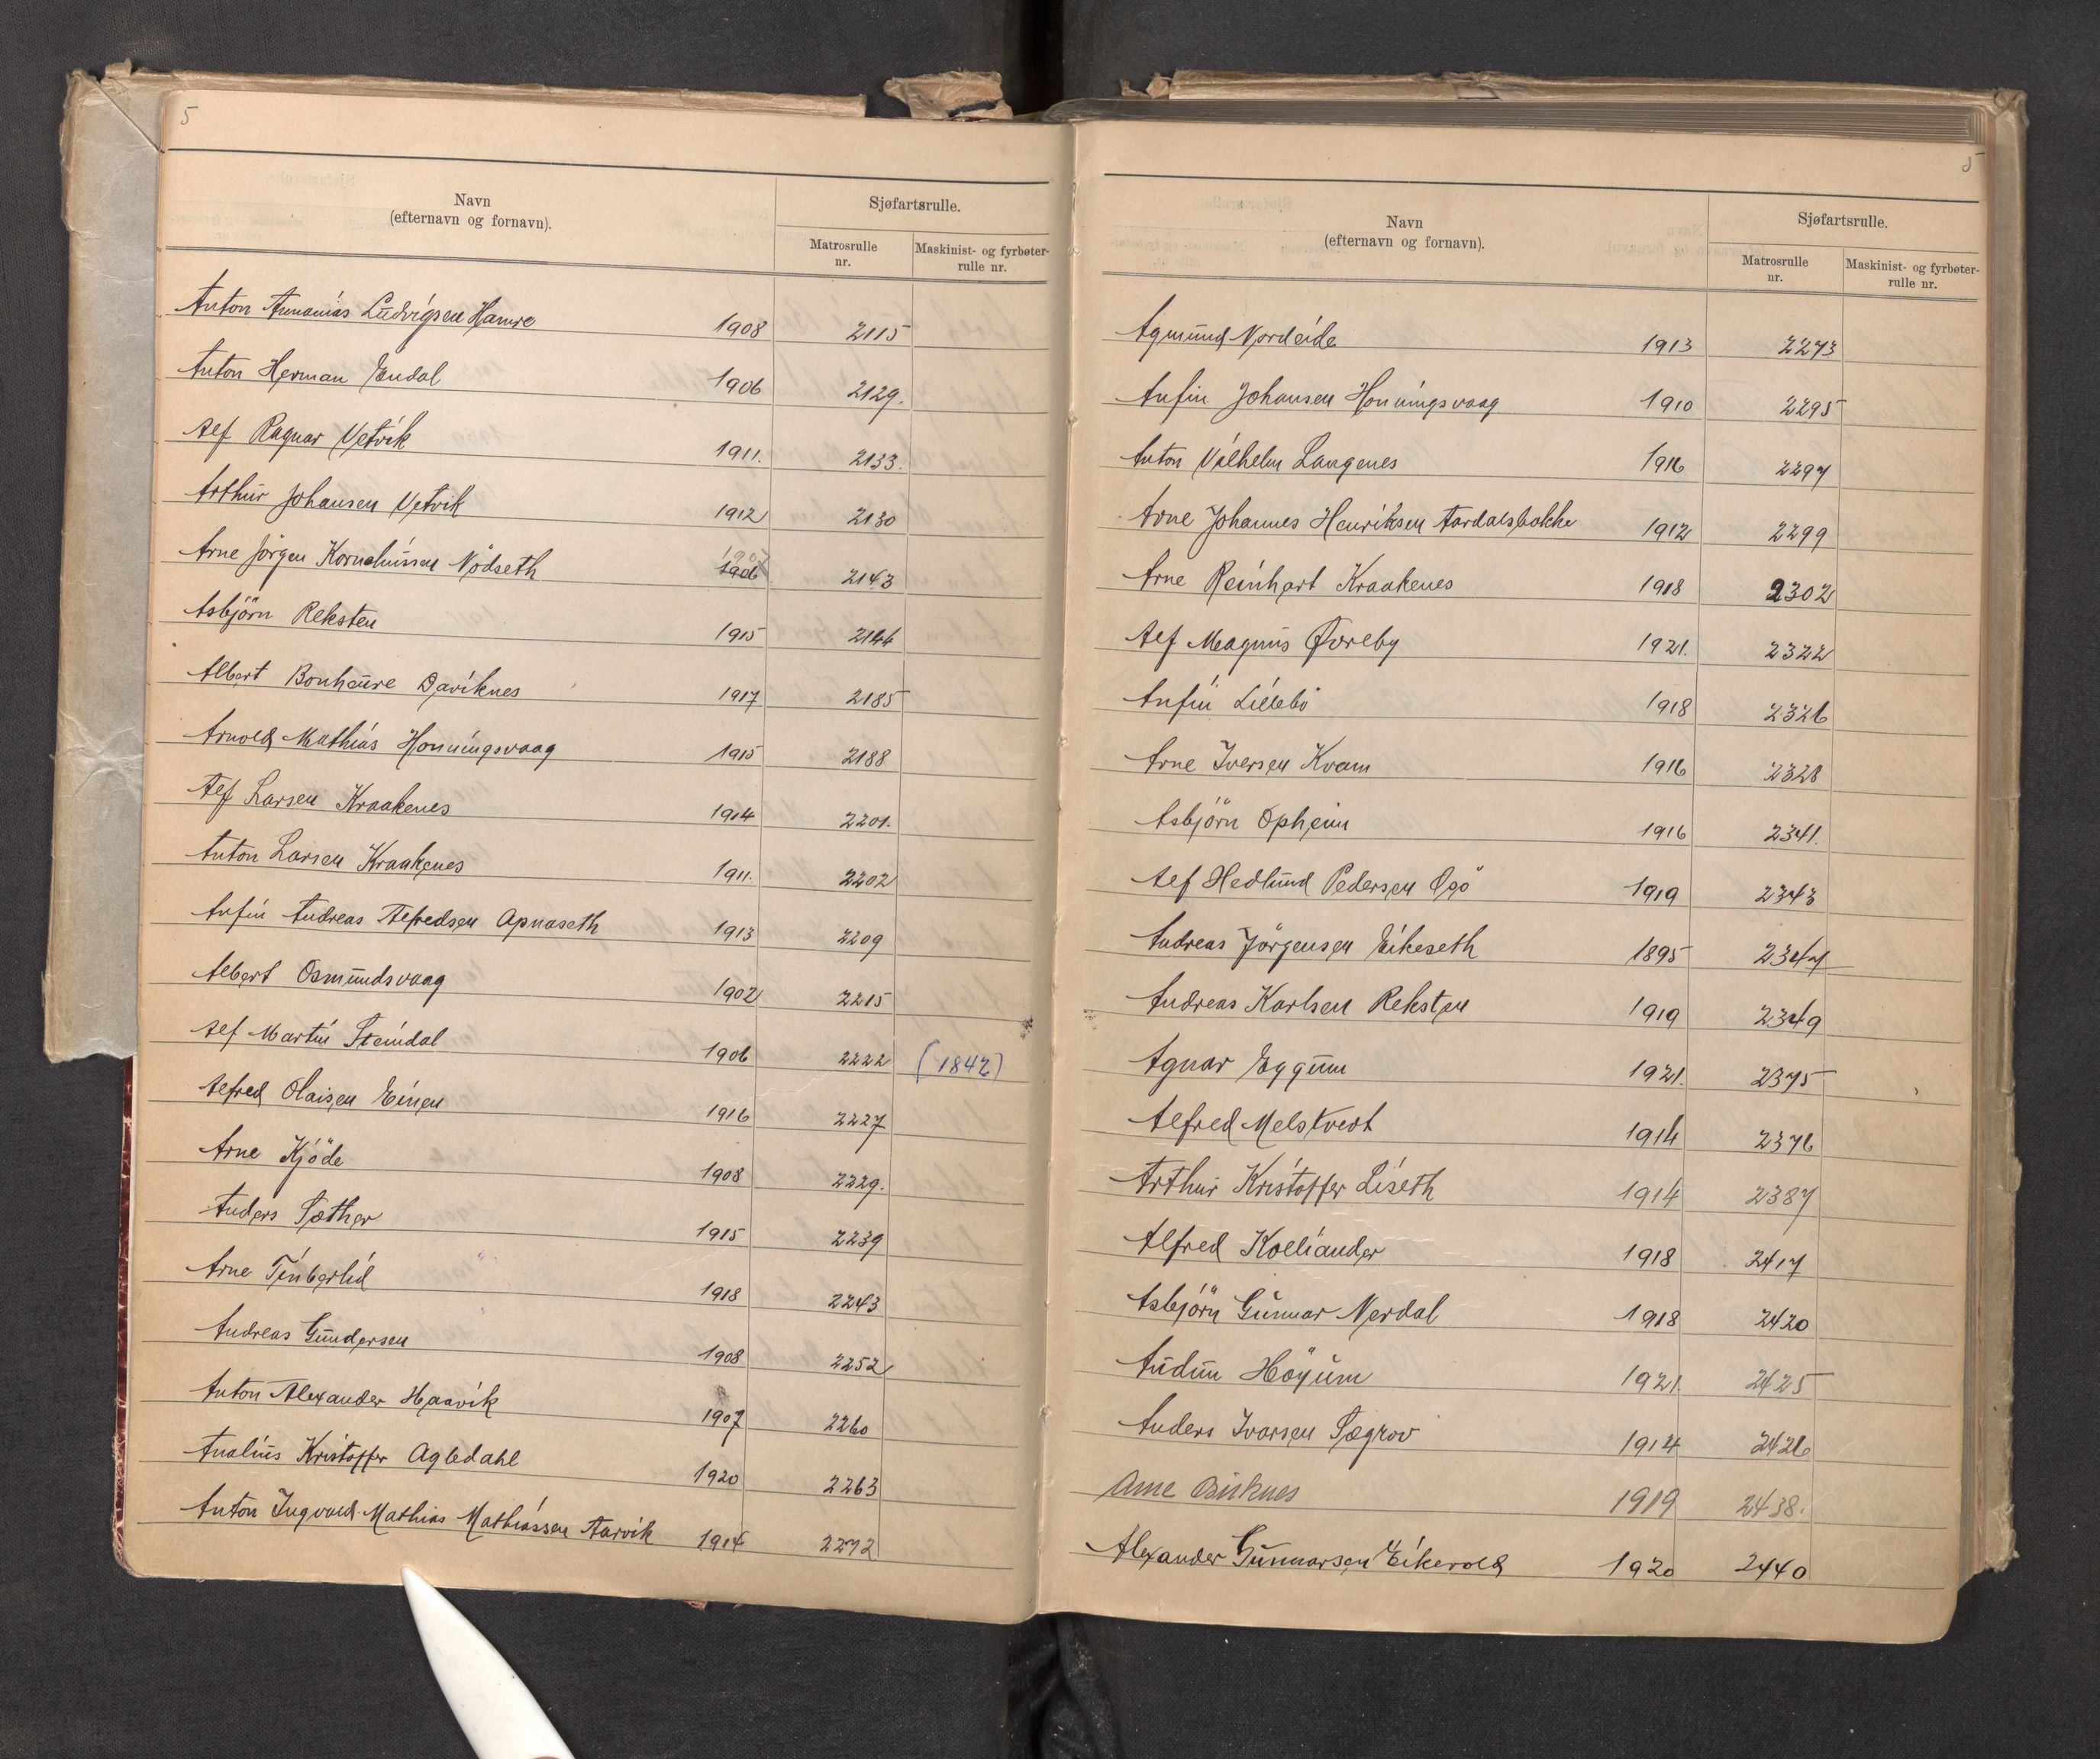 5
Navn
(efternavn og fornavn).
Sjøfartsrulle.
Matrosrulle
nr.
Maskinist- og fyrbøter-
rulle nr.
Anton Annanias Ludvigsen Hamre 1908 2115
Anton Herman Endal 1906 2129.
Alf Ragnar Vetvik 1911. 2133.
Arthur Johansen Vetvik 1912 2130
Arne Jörgen Korneliussen Nödseth 1906 1907 2143
Asbjörn Reksten 1915 2144
Albert Bonheure Daviknes 1917 2185
Arnold Mathias Honningsvaag 1915 2188
Alf Larsen Kraakenes 1914 2201.
Anton Larsen Kraakenes 1911. 2202
Anfin Andreas Alfredsen Apnaseth 1913 2209
Albert Osmundsvaag 1902 2215
Alf Martin Steindal 1906 2222 (1842)
Alfred Olaisen Einen 1916 2227
Arne Kjöde 1908 2229.
Anders Sæther 1915 2239
Arne Tenberlid 1918 2243
Andreas Gundersen 1908 2252
Anton Alexander Haavik 1907 2260
Analius Kristoffer Agledahl 1920 2263
Anton Ingvald Mathias Mathiassen Aarvik 1914 2272
5
Navn
(efternavn og fornavn).
Sjøfartsrulle.
Matrosrulle
nr.
Maskinist- og fyrbøter-
rulle nr.
Agmund Nordeide 1913 2273
Anfin Johansen Honningsvaag 1910 2295
Anton Vilhelm Langenes 1916 2297
Arne Johannes Henriksen Aardalsbakke 1912 2299
Arne Reinhart Kraakenes 1918 2302
Alf Magnus Øvreby 1921. 2322
Anfin Lillebö 1918 2326
Arne Iversen Kvam 1916 2328
Asbjörn Opheim 1916 2341.
Alf Hedlund Pedersen Osö 1919 2343
Andreas Jörgensen Eikeseth 1895 2347
Andreas Karlsen Reksten 1919 2349
Agnar Eggum 1921. 2375
Alfred Melstveit 1914 2376
Arthur Kristoffer Liseth 1914 2387
Alfred Kolliander 1918 2417
Asbjörn Gunnar Nerdal 1918 2420
Audun Höyum 1921. 2425
Anders Ivarsen Sægrov 1914 2426
Arne Birknes 1919 2438.
Alexander Gunnarsen Eikevold 1920 2440